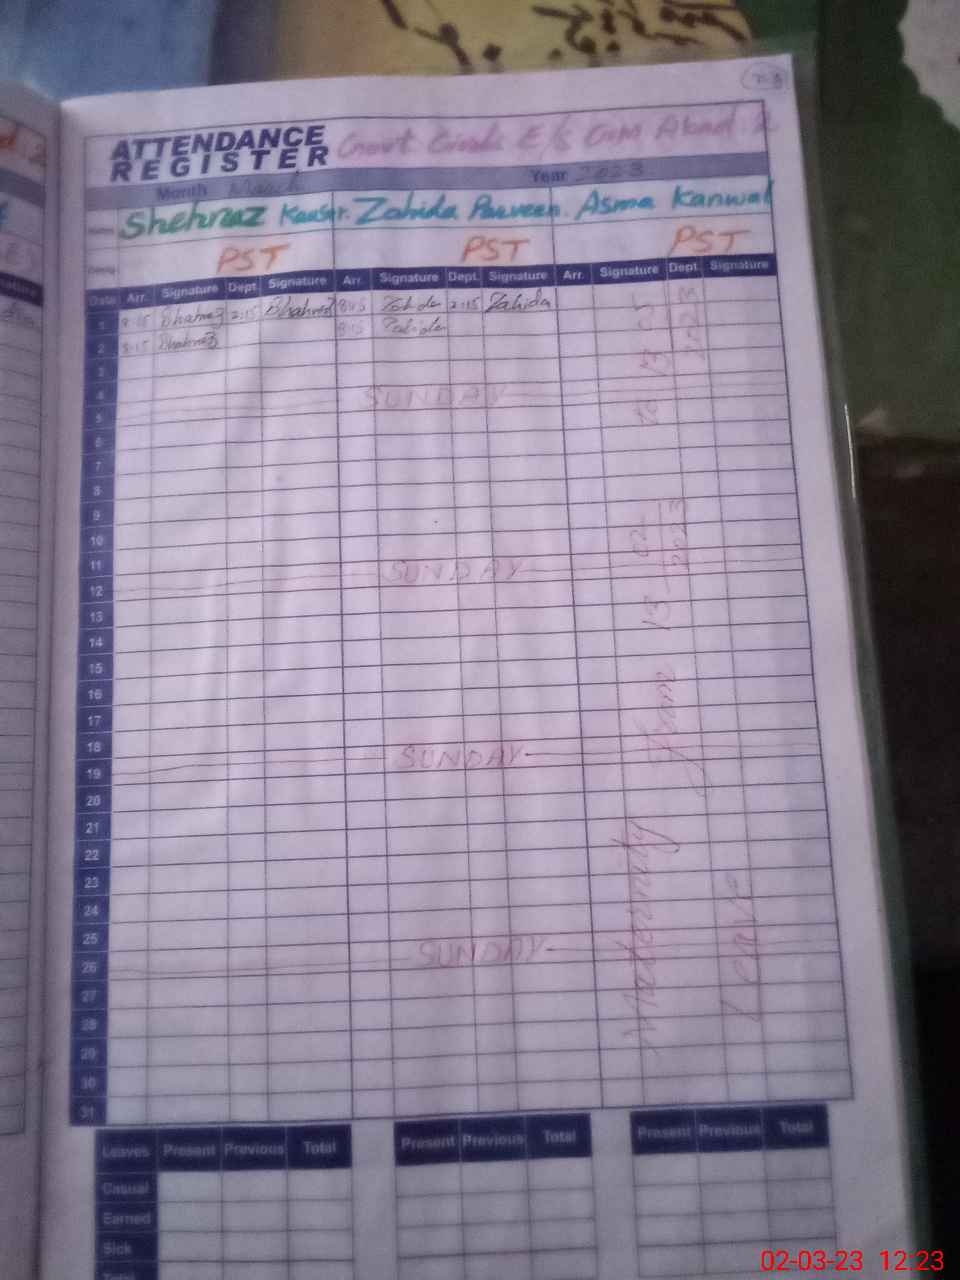 P-3
ATTENDANCE
REGISTER
Govt Girls E/S Abad 2
Month March Year 2023
Name Shehnaz Kausar. Zahida Parveen. Asma Kanwal
Desig PST PST PST
Date Arr. Signature Dept. Signature Arr. Signature Dept. Signature Arr. Signature Dept. Signature
1 8:15 Shahnaz 2:15 Shahnaz 8:15 Zahida 2:15 Zahida
2 8:15 Shahnaz 8:15 Zahida
3
4
SUNDAY
5
6
7
8
9
10
11 SUNDAY
12
13
14
15
16
17
18 SUNDAY
19
20
21
22
23
24
25 SUNDAY
26
27
28
29
30
31
Maternity
Leave
from 13-02-2023
to 13-05-2023
Leaves Present Previous Total Present Previous Total Present Previous Total
Casual
Earned
Sick
Total
02-03-23 12:23